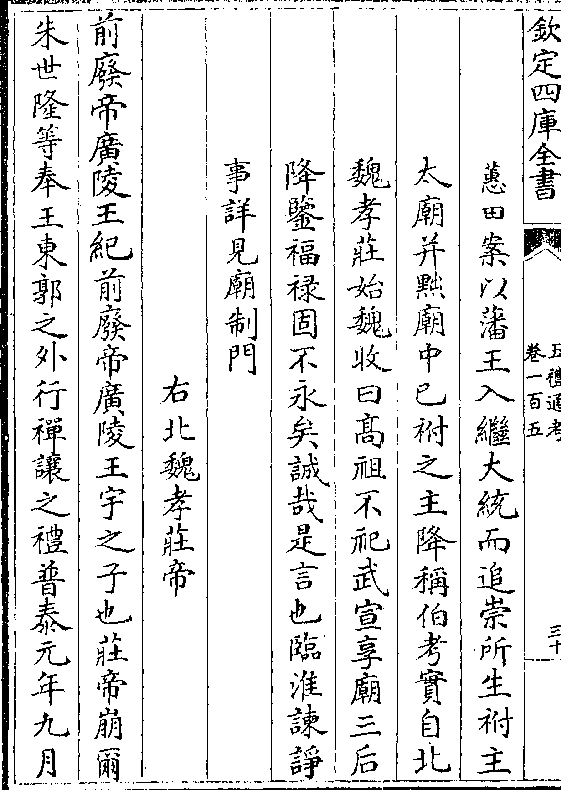 欽定四庫全書
五禮通考
卷一百五
三十
蕙田案以藩王入繼大統而追崇所生祔主
太廟并黜廟中已祔之主降稱伯考實自北
魏孝莊始魏收曰高祖不祀武宣享廟三后
降鑒福禄固不永矣誠哉是言也臨淮諫諍
事詳見廟制門
右北魏孝莊帝
前廢帝廣陵王紀前廢帝廣陵王宇之子也莊帝崩爾
朱世隆等奉王東郭之外行禪讓之禮普泰元年九月